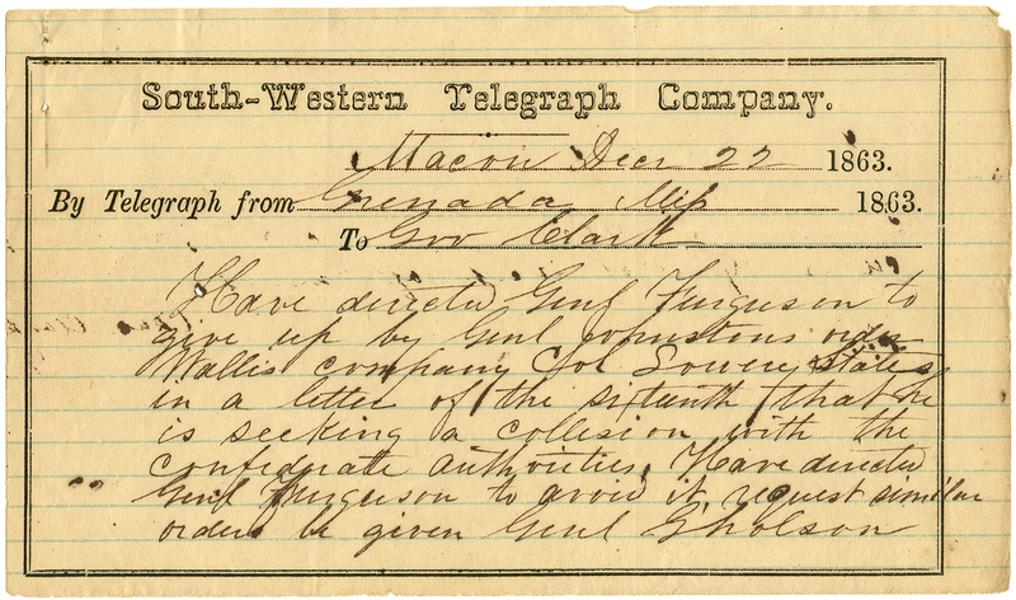 South-Western Telegraph Company.
Macon Decr 22 1863.
By Telegraph from Grenada Miſs 1863.
To Gov Clark
Have directed Genl Ferguson to
give up by Genl Johnstons order
Wallis company Col Lowery States
in a letter of the sixteenth that he
is seeking a collision with the
confederate authorities. Have directed
Genl Ferguson to avoid it request similar
orders be given Genl Gholson